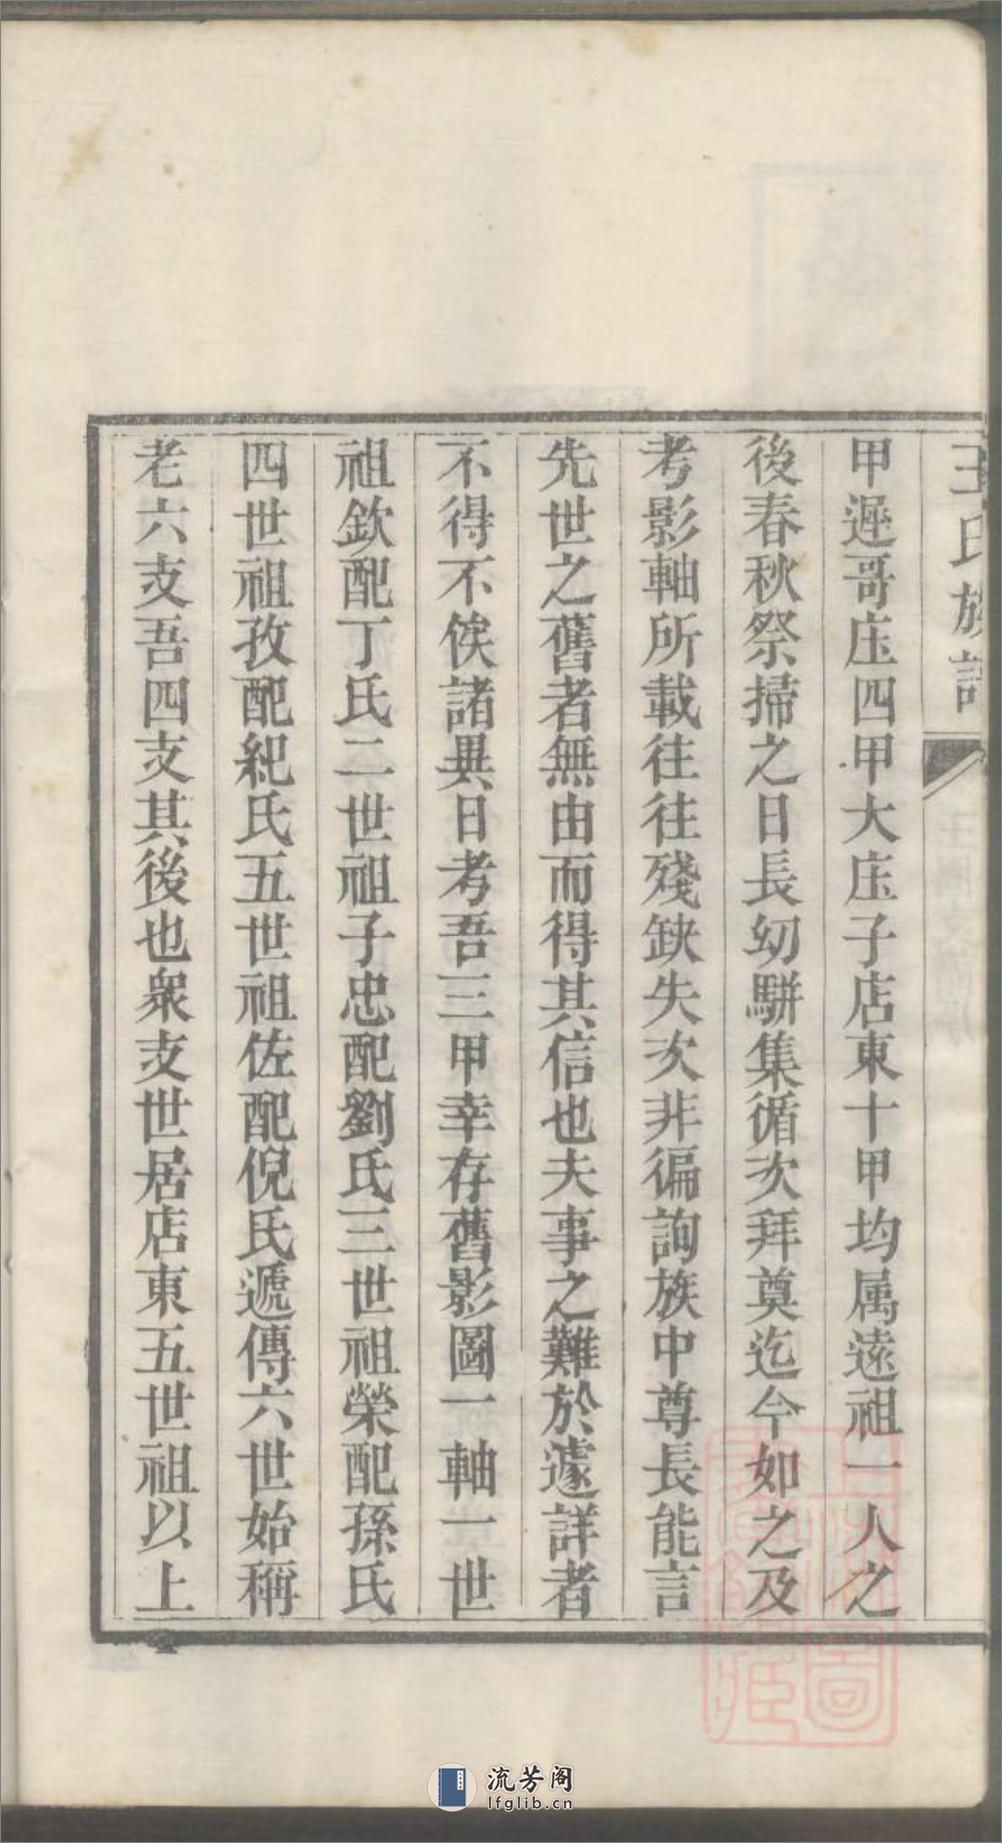 王氏族譜
甲遲哥庄四甲大庄子店東十甲均属遠祖一人之
後春秋祭掃之日長幼駢集循次拜奠迄今如之及
考影軸所載往往殘缺失次非徧詢族中尊長能言
先世之舊者無由而得其信也夫事之難於遽詳者
不得不俟諸異日考吾三甲幸存舊影圖一軸一世
祖欽配丁氏二世祖子忠配劉氏三世祖榮配孫氏
四世祖孜配紀氏五世祖佐配倪氏遞傳六世始稱
老六支吾四支其後也衆支世居店東五世祖以上
流芳阁
lfglib.cn